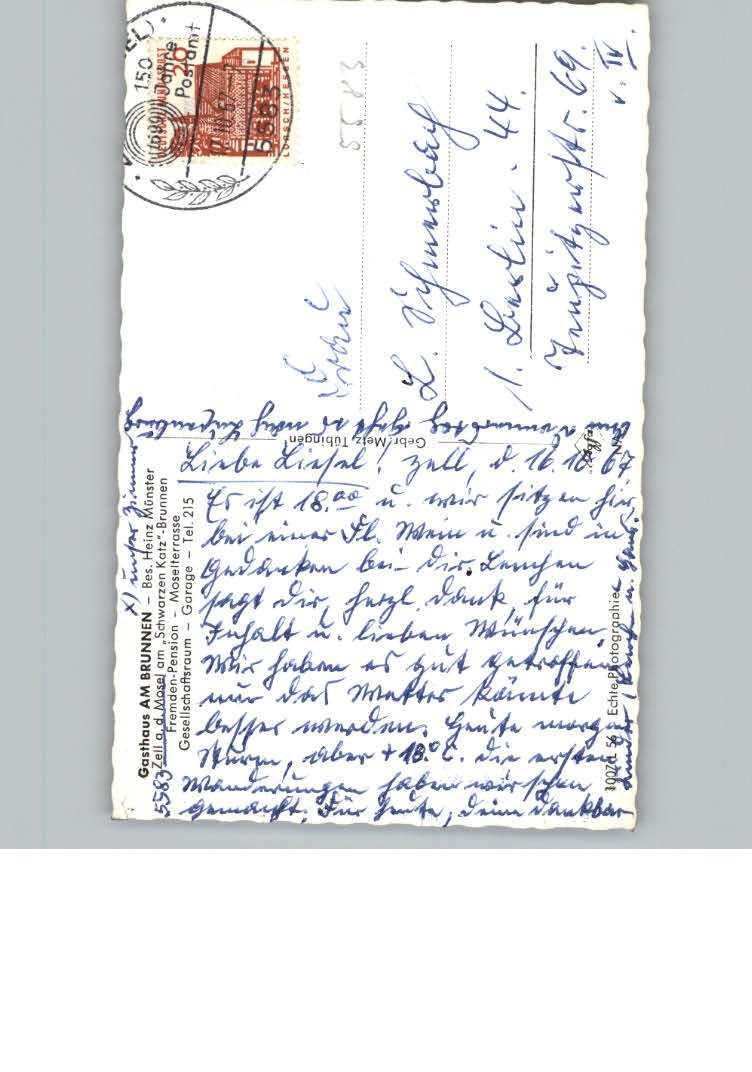 Gasthaus AM BRUNNEN – Bes. Heinz Münster
5583 Zell a. d. Mosel am „Schwarzen Katz"-Brunnen
Fremden-Pension – Moselterrasse
Gesellschaftsraum – Garage – Tel. 215
x) unser Zimmer
Liebe Liesel! Zell, d. 16.10.67
Es ist 18.00 u. wir sitzen hier
bei einer Fl. Wein u. sind in
Gedanken bei Dir. Lenchen
sagt Dir herzl. Dank für
Inhalt u. lieben Wünschen
Wir haben es gut getroffen
nur das Wetter könnte
besser werden. Heute morgen
Sturm, aber + 18.°C. Die ersten
Wanderungen haben wir schon
gemacht. Für heute, Deine dankbar
Kinder Lenchen u. Hans.
Am Donnerstag geht es nach
100Zd. 56 Echte Photographie
Gebr. Metz, Tübingen
150 Jahre
Postamt
5583
DEUTSCHE BUNDESPOST
20
LORSCH/HESSEN
5583
Frau
L. Schmerbach
1. Berlin - 44.
69.
v. IV.